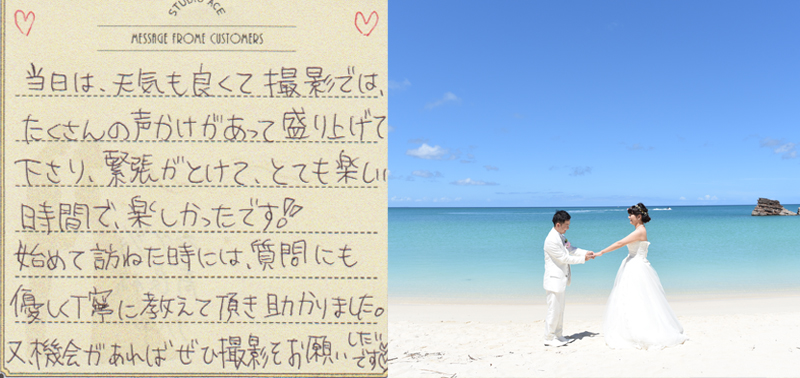 STUDIO ACE
MESSAGE FROME CUSTOMERS
当日は、天気も良くて撮影では、
たくさんの声かけがあって盛り上げて
下さり、緊張がとけて、とても楽しい
時間で、楽しかったです!!
始めて訪ねた時には、質問にも
優しく丁寧に教えて頂き助かりました。
又機会があればぜひ撮影をお願いしたいです♡